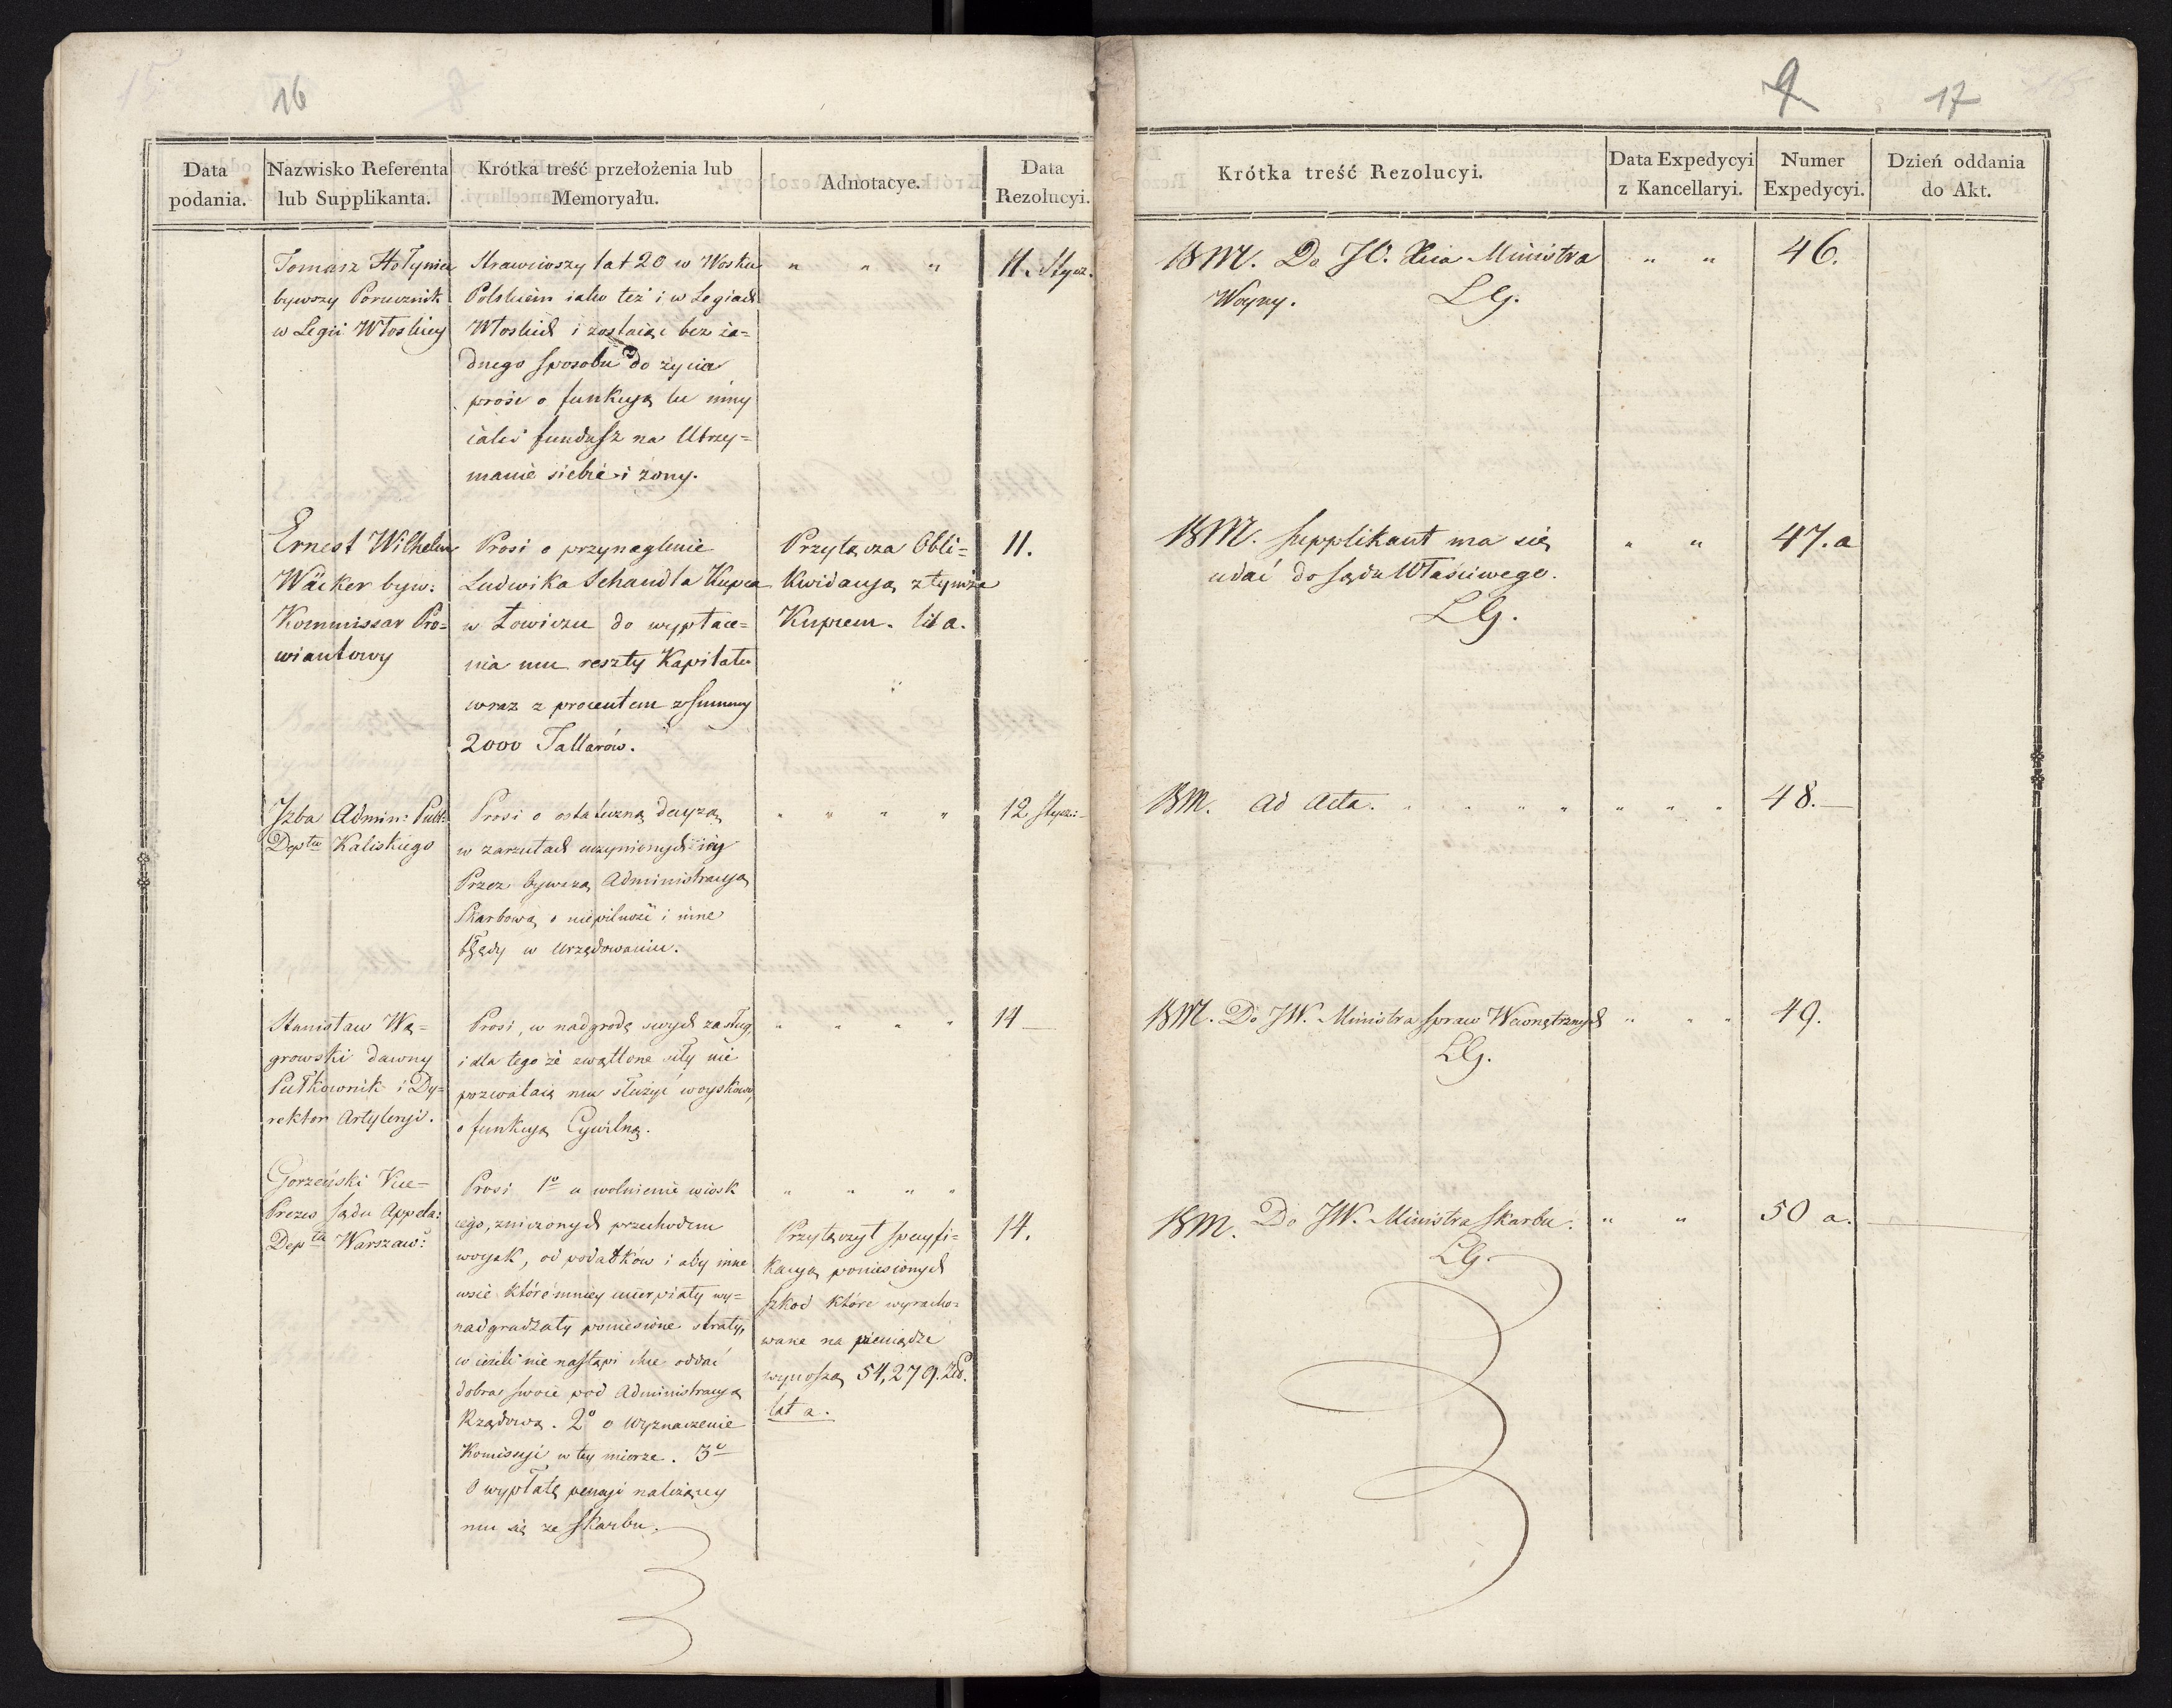 16
9
17
Data podania.
Nazwisko Referenta lub Supplikanta.
Krótka treść przełożenia lub Memoryału.
Adnotacye.
Data Rezolucyi.
Krótka treść Rezolucyi.
Data Expedycyi z Kancellaryi.
Numer Expedycyi.
Dzień oddania do Akt.
Tomasz Hołyniec
bywszy Porucznik
w Legii Włoskiey
Strawiwszy lat 20 w Wosku
Polskiem iako też i w Legiach
Włoskich i zostaiąc bez ża=
dnego sposobu do życia
prosi o funkcyą lu inny
iakiś fundusz na Utrzy=
manie siebie i żony.
" " "
11. Stycz.
BM. Do JO. Xcia Ministra
Woyny. LG.
" "
46.
Ernest Wilhelm
Wäcker byw:
Kommissar Pro=
wiantowy
Prosi o przynaglenie
Ludwika Schandla Kupca
w Łowiczu do wypłace=
nia mu reszty Kapitału
wraz z procentem z Summy
2000 Tallarów.
Przyłącza Obli=
Kwidacyą z tymże
Kupcem. lit a.
11.
BM. Supplikant ma się
udać do Sądu Właściwego.
LG.
" "
47. a
Izba Admin: Publ:
Deptu Kaliskiego
Prosi o ostateczną decyzą
w zarzutach uczynionych iéy
Przez bywszą Administracyą
Skarbową o niepilność i inne
błędy w Urzędowaniu.
" " " "
12 Stycz:
BM. Ad Acta. " " " " " " "
48.—
Stanisław Wę=
growski dawny
Pułkownik i Dy=
rektor Artyleryi.
Prosi, w nadgrodę swych zasług
i dla tego że zwątlone siły nie
pozwalaią mu służyć woyskowo,
o funkcyą Cywilną.
" " " "
14 —
BM. Do JW. Ministra Spraw Wewnętrznych
LG.
" " "
49.
Gorzeński Vice=
Prezes Sądu Appela:
Deptu Warszaw:
Prosi 1o u wolnienie wiosk
iego, zniczonych przechodem
woysk, od podatkow i aby inne
wsie które mniey ucierpiały wy=
nadgradzały poniesione straty,
w ieżeli nie nastąpi chce oddać
dobra swoie pod Administracyą
Rządową. 2o o Wyznaczenie
Komissyi w tey mierze. 3o
O wypłatę pensyi należącey
mu się ze Skarbu.
" " " "
Przyłączył Specyfi=
Kacyą poniesionych
szkod które wyracho=
wane na pieniądze
wynoszą 54,279. Złp.
lit a.
14.
BM. Do JW. Ministra Skarbu.
LG.
" "
50 a.